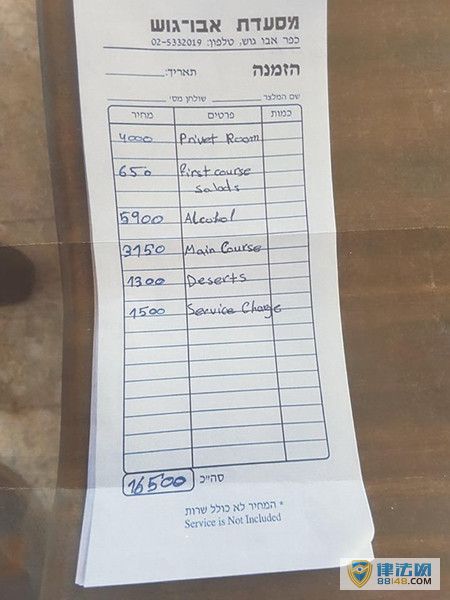 מסעדת אבו־גוש
כפר אבו גוש, טלפון: 02-5332019
הזמנה
תאריך:
שם המלצר שולחן מס׳
כמות פרטים מחיר
Privet Room 4000
First course salads 650
Alcohol 5900
Main Course 3150
Deserts 1300
Service Charge 1500
סה״כ 16500
* המחיר לא כולל שרות
Service is Not Included
律法网
88148.com